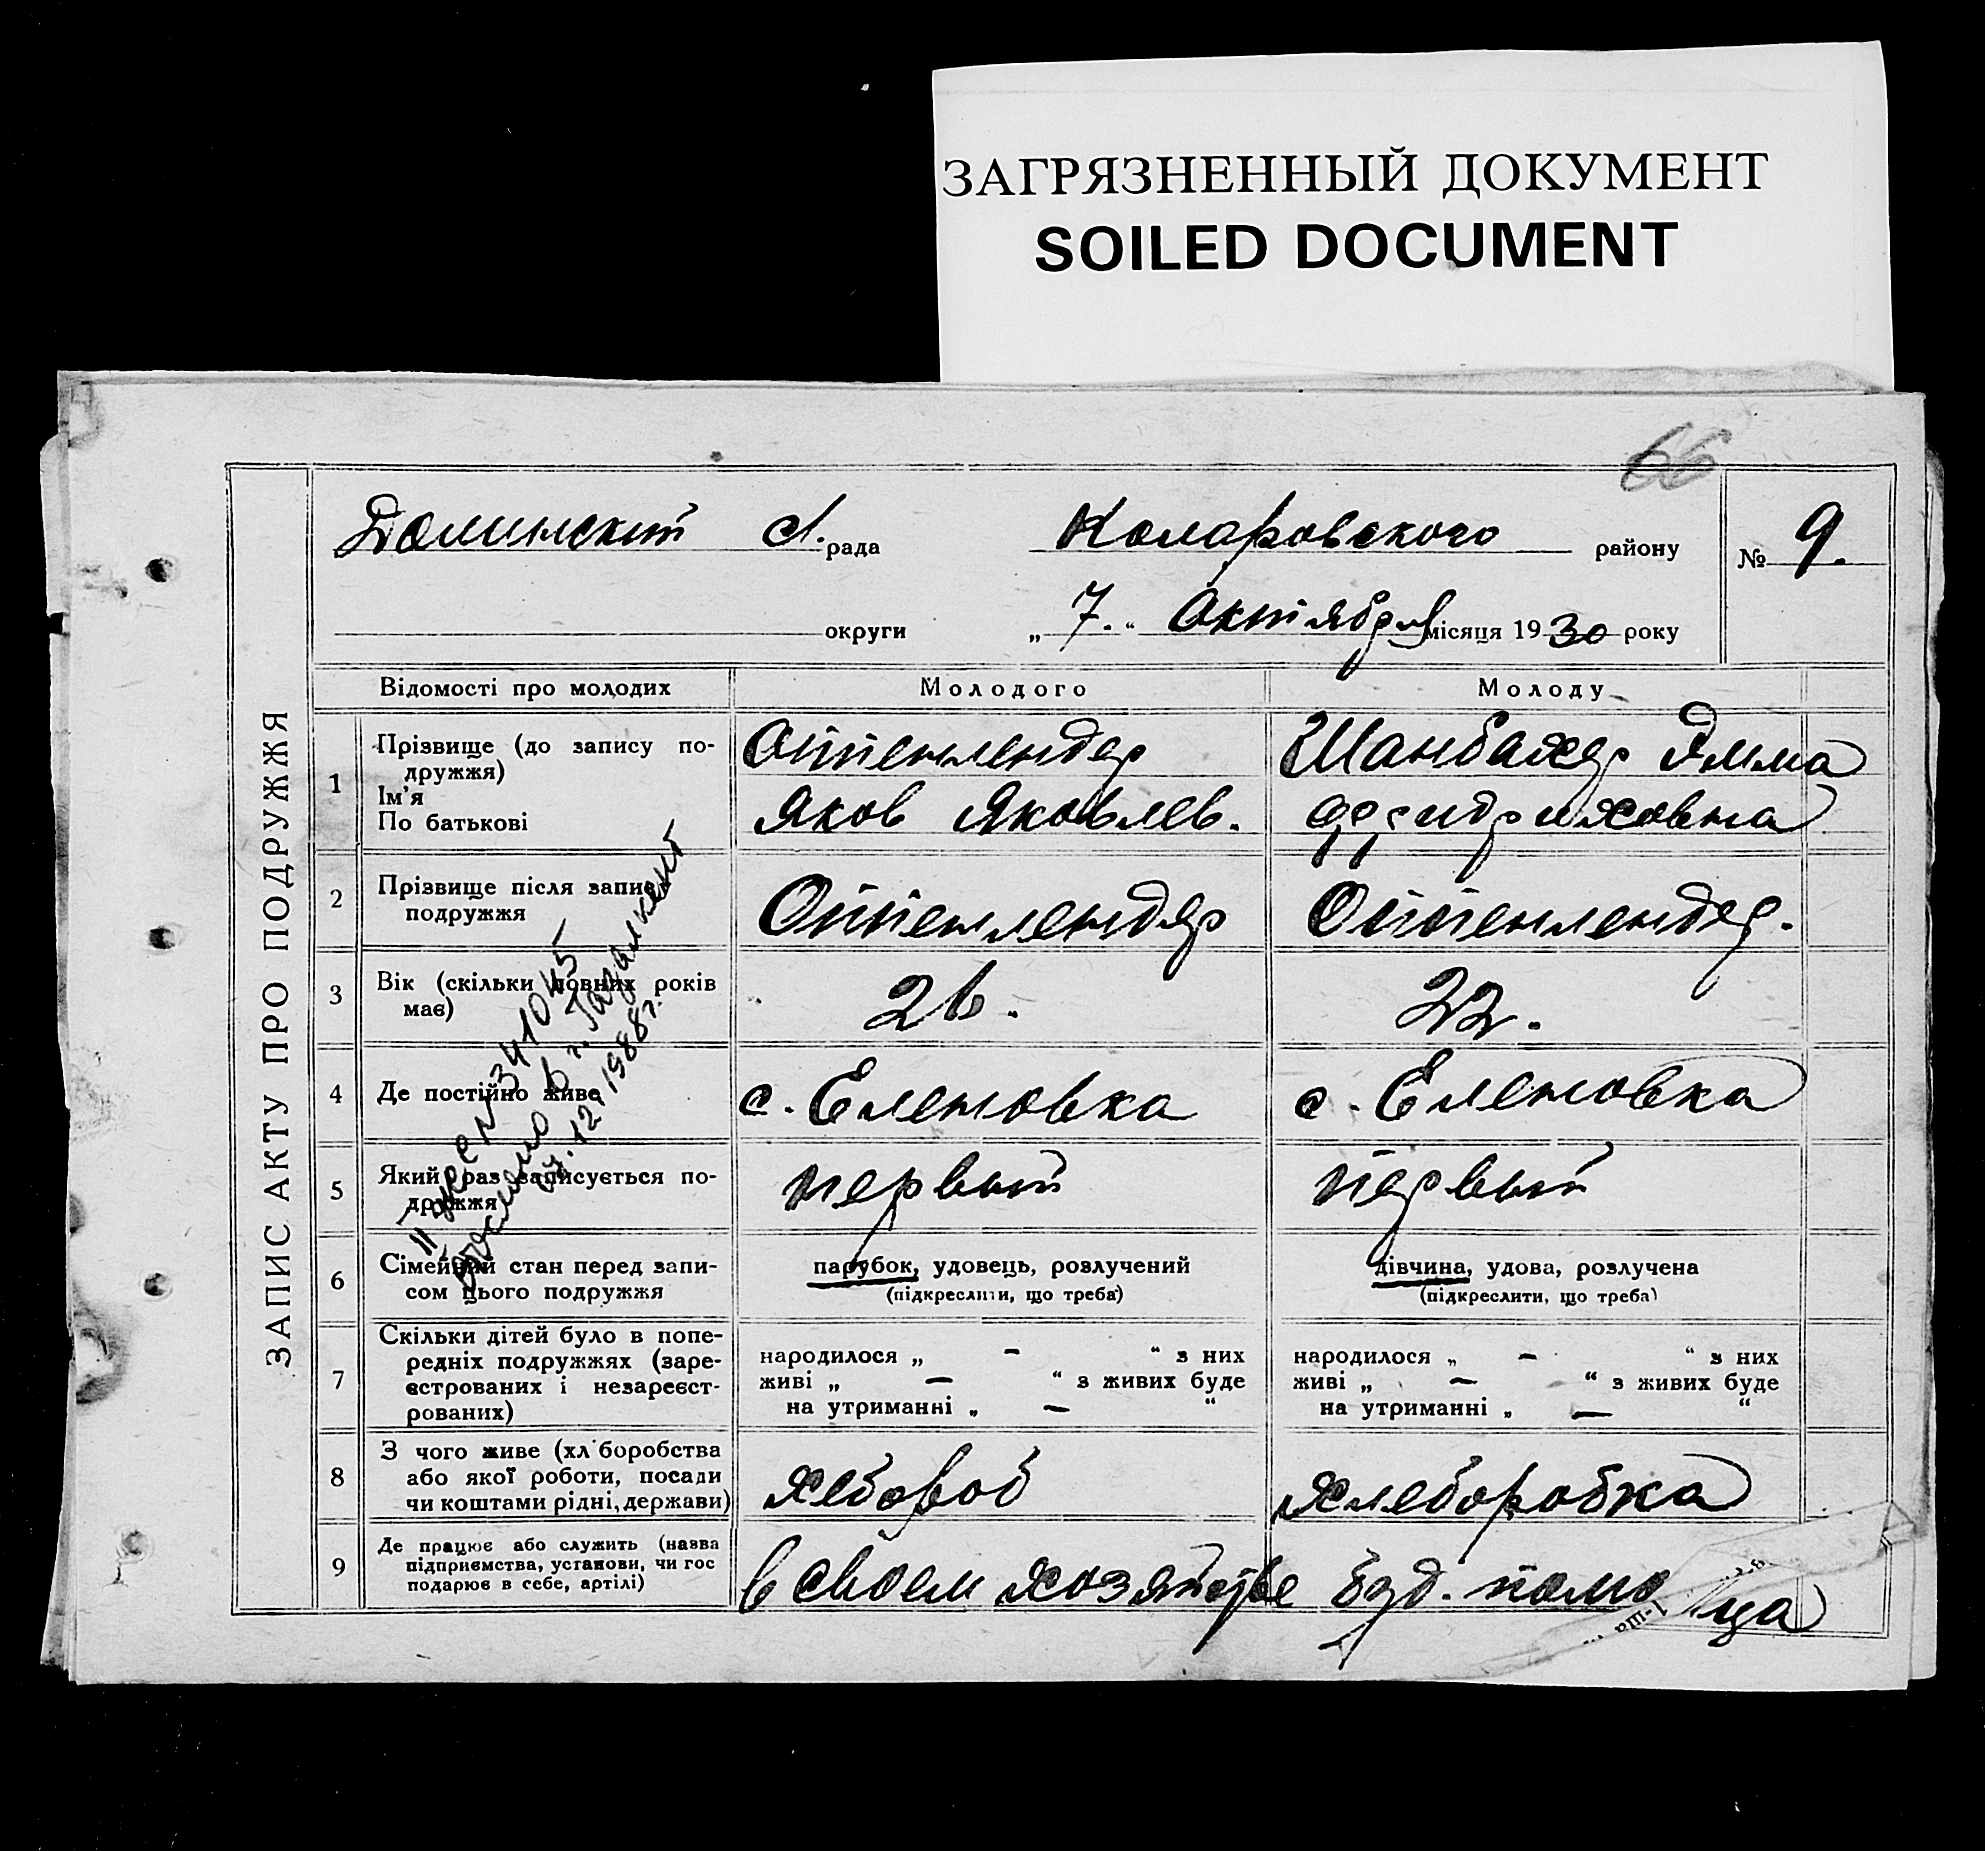 ЗАГРЯЗНЕННЫЙ ДОКУМЕНТ
SOILED DOCUMENT
66
ЗАПИС АКТУ ПРО ПОДРУЖЖЯ
Долинский с. рада Коларовского району № 9.
округи „ 7. “ Октября місяця 1930 року
Відомості про молодих Молодого Молоду
1 Прізвище (до запису по-
дружжя)
Ім'я
По батькові
Оттенлендер
Яков Яковлев.
Шанбахер Эмма
Фридриховна
2 Прізвище після запису
подружжя
Оттенлендер
Оттенлендер.
3 Вік (скільки повних років
має)
26.
22.
4 Де постійно живе
с. Еленовка
с. Еленовка
5 Який раз записується по-
дружжя
первый
первый
6 Сімейний стан перед запи-
сом цього подружжя
парубок, удовець, розлучений
(підкреслити, що треба)
дівчина, удова, розлучена
(підкреслити, що треба)
7 Скільки дітей було в попе-
редніх подружжях (заре-
єстрованих і незареєст-
рованих)
народилося „ — “ з них
живі „ — “ з живих буде
на утриманні „ — “
народилося „ — “ з них
живі „ — “ з живих буде
на утриманні „ — “
8 З чого живе (хл боробства
або якої роботи, посади
чи коштами рідні, держави)
хлебороб
хлеборобка
9 Де працює або служить (назва
підприємства, установи, чи гос
подарює в себе, артілі)
в своем хозяйстве
буд. помо ца
N 341045
выслано в г. Газалкент
12/1988г.